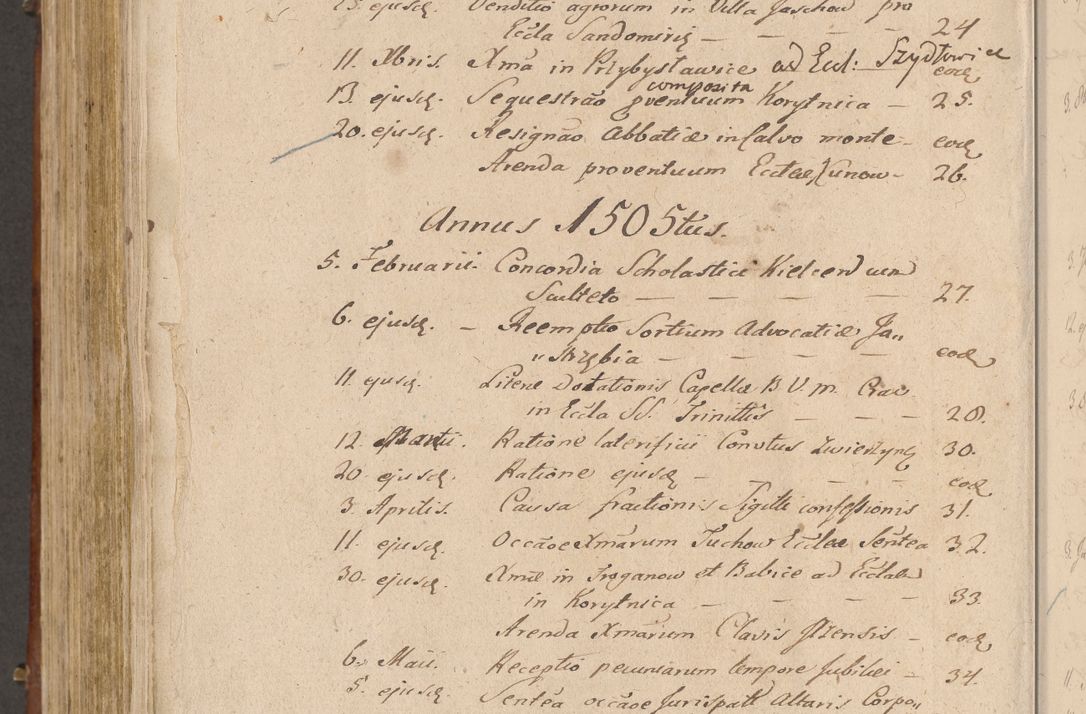 13. ejusd. Venditio agrorum in Villa Jaschow pro
Eccla Sandomirij — — — — 24
11. Xbris. Xma in Przybysławice ad Eccl: Szydłowie eod
13. ejusd. Sequestrão pventuum composita Korytnica — 25.
20. ejusd. Resignão Abbatiæ in Calvo monte — eod
Arenda proventuum Eccleæ Kunow — 26.
Annus 1505tus.
5. Februarii. Concordia Scholastici Kielcen cum
Sculteto — — — — 27.
6. ejusd. — Reemptio Sortium Advocatiæ Ja„
„strzębia — — — — eod
11. ejusd. Literæ Dotationis Capellæ B. V. M. Crac
in Eccla SS. Trinittis — — — 28.
12. Martii. Ratione laterificii Convtus Zwierzync 30.
20. ejusd. Ratione ejusd — — — — eod
3. Aprilis. Causa fractionis Sigilli confessionis 31.
11. ejusd. Occãoe Xmarum Tuchow Eccleæ Sentea 32.
30. ejusd. Xmæ in Troganow et Babice ad Ecclam
in Korytnica — — — — 33.
Arenda Xmarum Clavis Ilzensis — eod
6. Maii. Receptio pecuniarum tempore Jubilei — 34.
5. ejusd. Sentea occãoe Jurispatt Altaris Corpo„